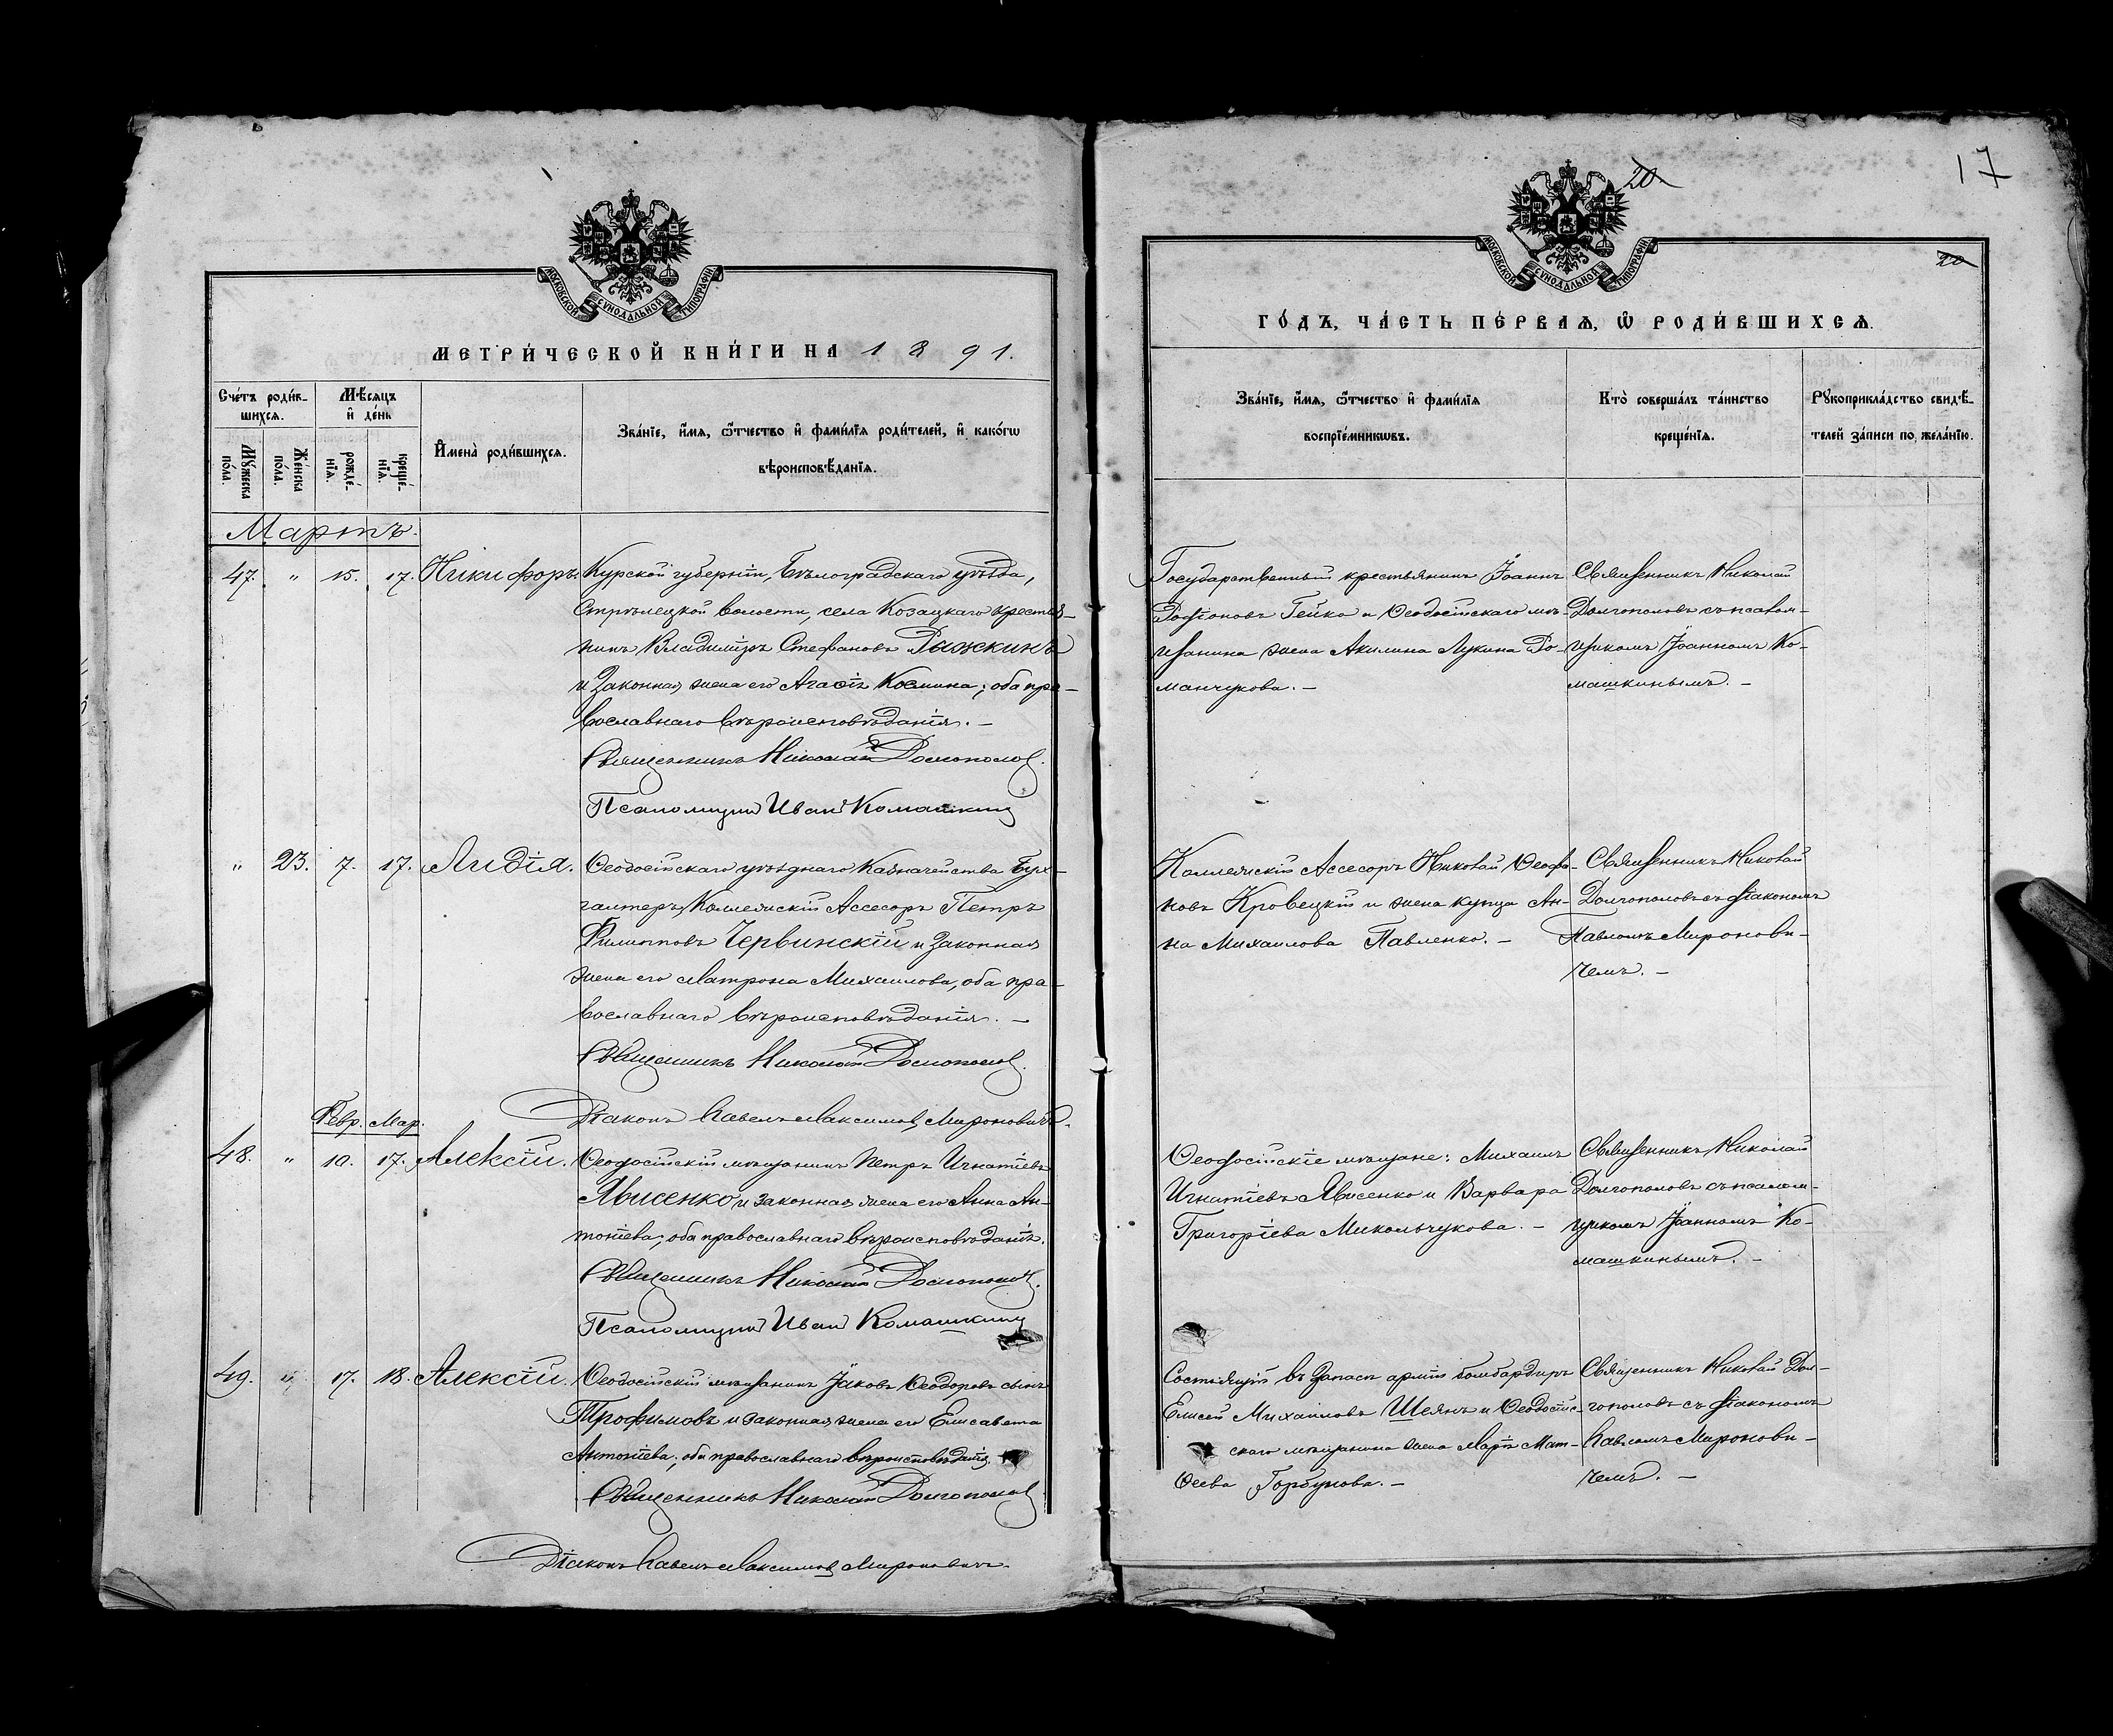 МОСКОВСКОЙ СѴНОДАЛЬНОЙ ТИПОГРАФІИ
МЕТРИ́ЧЕСКОЙ КНИ́ГИ НА 1891.
Сче́тъ роди́в-
шихсѧ.
Мꙋ́жеска
по́ла.
Же́нска
по́ла.
Мѣ́сѧцъ
и҆ де́нь
рожде́-
нїѧ.
креще́-
нїѧ.
И҆мена̀ роди́вшихсѧ.
Зва́нїе, и҆́мѧ, ѻ҆́тчество и҆ фами́лїѧ роди́телей, и҆ како́гѡ
вѣроисповѣ́данїѧ.
Мартъ.
47. " 15. 17. Никифоръ.
Курской губерніи, Бѣлоградскаго уѣзда,
Стрѣлецкой волости, села Козацкаго крестья-
нинъ Владиміръ Стефановъ Рыжкинъ
и законная жена его Агаѳія Космина; оба пра-
вославнаго вѣроисповѣданія. —
Священникъ Николай Долгополов
Псаломщикъ Иван Комашкин
" 23. 7. 17. Лидія.
Ѳеодосійскаго уѣзднаго Казначейства Бух-
галтеръ, Коллежскій Ассесоръ Петръ
Филипповъ Червинскій и законная
жена его Матрона Михаилова, оба пра-
вославнаго вѣроисповѣданія. —
Священникъ Николай Долгополов
Діаконъ Павелъ Максимов Мироновичъ.
Февр. Мар.
48. " 10. 17. Алексій.
Ѳеодосійскій мѣщанинъ Петръ Игнатіевъ
Явисенко и законная жена его Анна Ан-
тоніева; оба православнаго вѣроисповѣданія.
Священникъ Николай Долгополов
Псаломщикъ Иван Комашкин
49. " 17. 18. Алексій.
Ѳеодосійскій мѣщанинъ Іаковъ Ѳеодоровъ сынъ
Трофимовъ и законная жена его Елисавета
Антоніева; оба православнаго вѣроисповѣданія.
Священникъ Николай Долгополов
Діаконъ Павелъ Максимов Мироновичъ
20
17
20
МОСКОВСКОЙ СѴНОДАЛЬНОЙ ТИПОГРАФІИ
ГО́ДЪ, ЧА́СТЬ ПЕ́РВАѦ, Ѽ РОДИ́ВШИХСѦ.
Зва́нїе, и҆́мѧ, ѻ҆́тчество и҆ фами́лїѧ
воспрїе́мникѡвъ.
Кто̀ соверша́лъ та́инство
креще́нїѧ.
Рꙋкоприкла́дство свидѣ́-
телей за́писи по жела́нїю.
Государственный крестьянинъ Іоаннъ
Родіоновъ Гейко и Ѳеодосійскаго мѣ-
щанина жена Акилина Лукина Ро-
манчукова. —
Священникъ Николай
Долгополовъ съ псалом-
щикомъ Іоанномъ Ко-
машкинымъ. —
Коллежскій Ассесоръ Николай Ѳеофа-
новъ Кровецкій и жена купца Ан-
на Михаилова Павленко. —
Священникъ Николай
Долгополовъ съ діакономъ
Павломъ Миронови-
чемъ. —
Ѳеодосійскіе мѣщане: Михаилъ
Игнатіевъ Явисенко и Варвара
Григоріева Микольчукова. —
Священникъ Николай
Долгополовъ съ псалом-
щикомъ Іоанномъ Ко-
машкинымъ. —
Состоящій въ запасѣ арміи бомбардиръ
Елисей Михаиловъ Шеянъ и Ѳеодосій-
скаго мѣщанина жена Марія Мат-
ѳеева Горбунова. —
Священникъ Николай Дол-
гополовъ съ діакономъ
Павломъ Миронови-
чемъ. —